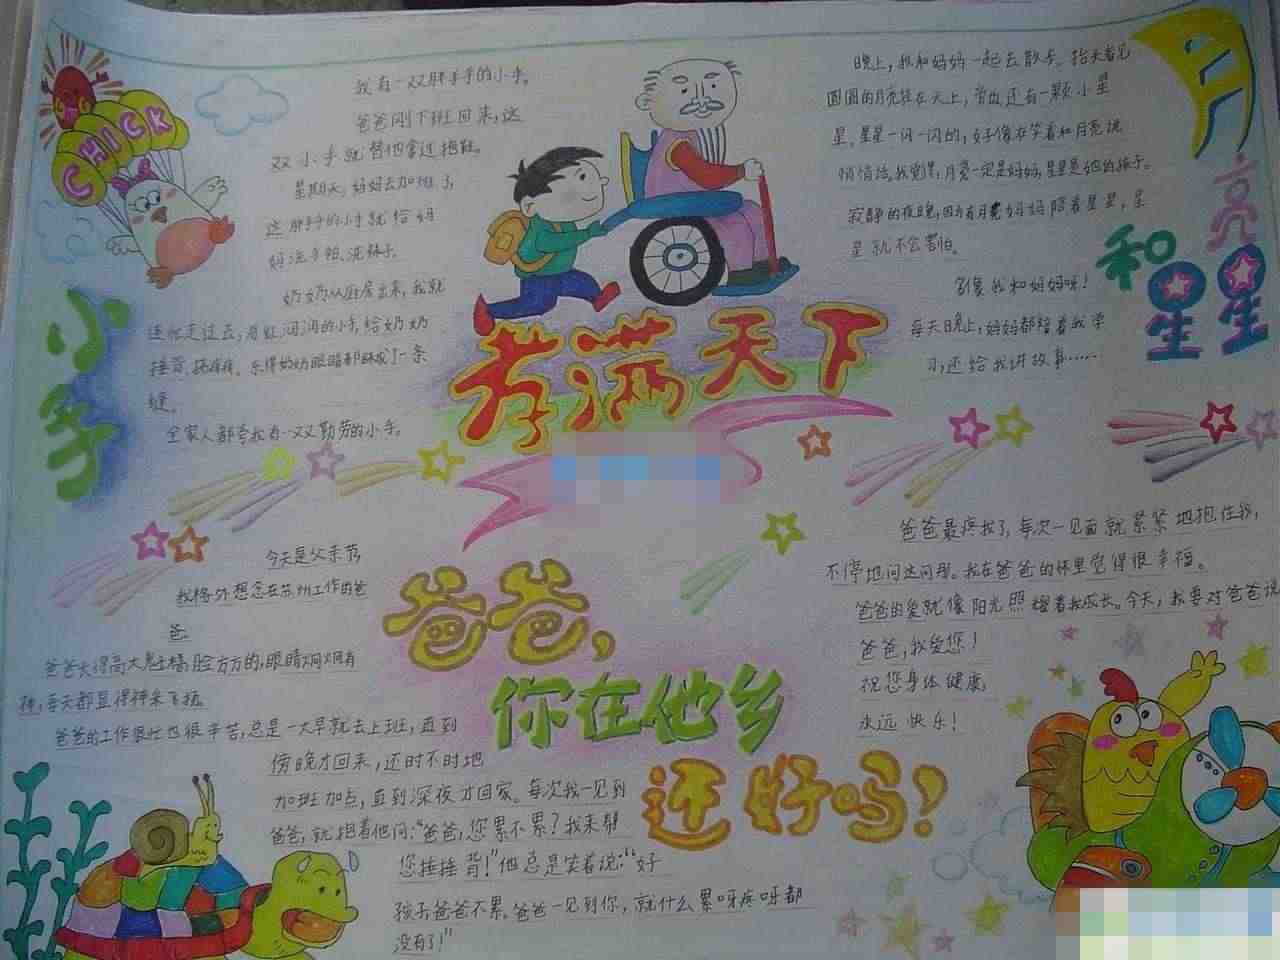 CHICK
小手
我有一双胖手手的小手。
爸爸刚下班回来,这
双小手就替他拿过拖鞋。
星期天,妈妈去加班了,
这胖手手的小手就给妈
妈洗手帕、洗袜子。
奶奶从厨房出来,我就
连忙走过去,用红润润的小手,给奶奶
捶背、挠痒痒。乐得奶奶眼睛都眯成了一条
缝。
全家人都夸我有一双勤劳的小手。
孝满天下
月亮和星星
晚上,我和妈妈一起去散步。抬头看见
圆圆的月亮挂在天上,旁边还有一颗小星
星。星星一闪一闪的,好像在笑着和月亮说
悄悄话。我觉得,月亮一定是妈妈,星星是她的孩子。
寂静的夜晚,因为有月亮妈妈陪着星星,星
星就不会害怕。
多像我和妈妈呀!
每天晚上,妈妈都陪着我学
习,还给我讲故事……
爸爸,
你在他乡
还好吗?
今天是父亲节,
我格外想念在苏州工作的爸
爸。
爸爸长得高大魁梧,脸方方的,眼睛炯炯有
神,每天都显得神采飞扬。
爸爸的工作很忙也很辛苦,总是一大早就去上班,直到
傍晚才回来,还时不时地
加班加点,直到深夜才回家。每次我一见到
爸爸,就抱着他问:“爸爸,您累不累?我来帮
您捶捶背!”他总是笑着说:“好
孩子爸爸不累。爸爸一见到你,就什么累呀疼呀都
没有了!”
爸爸最疼我了,每次一见面就紧紧地抱住我,
不停地问这问那。我在爸爸的怀里觉得很幸福。
爸爸的爱就像阳光照耀着我成长。今天,我要对爸爸说
爸爸,我爱您!
祝您身体健康,
永远快乐!